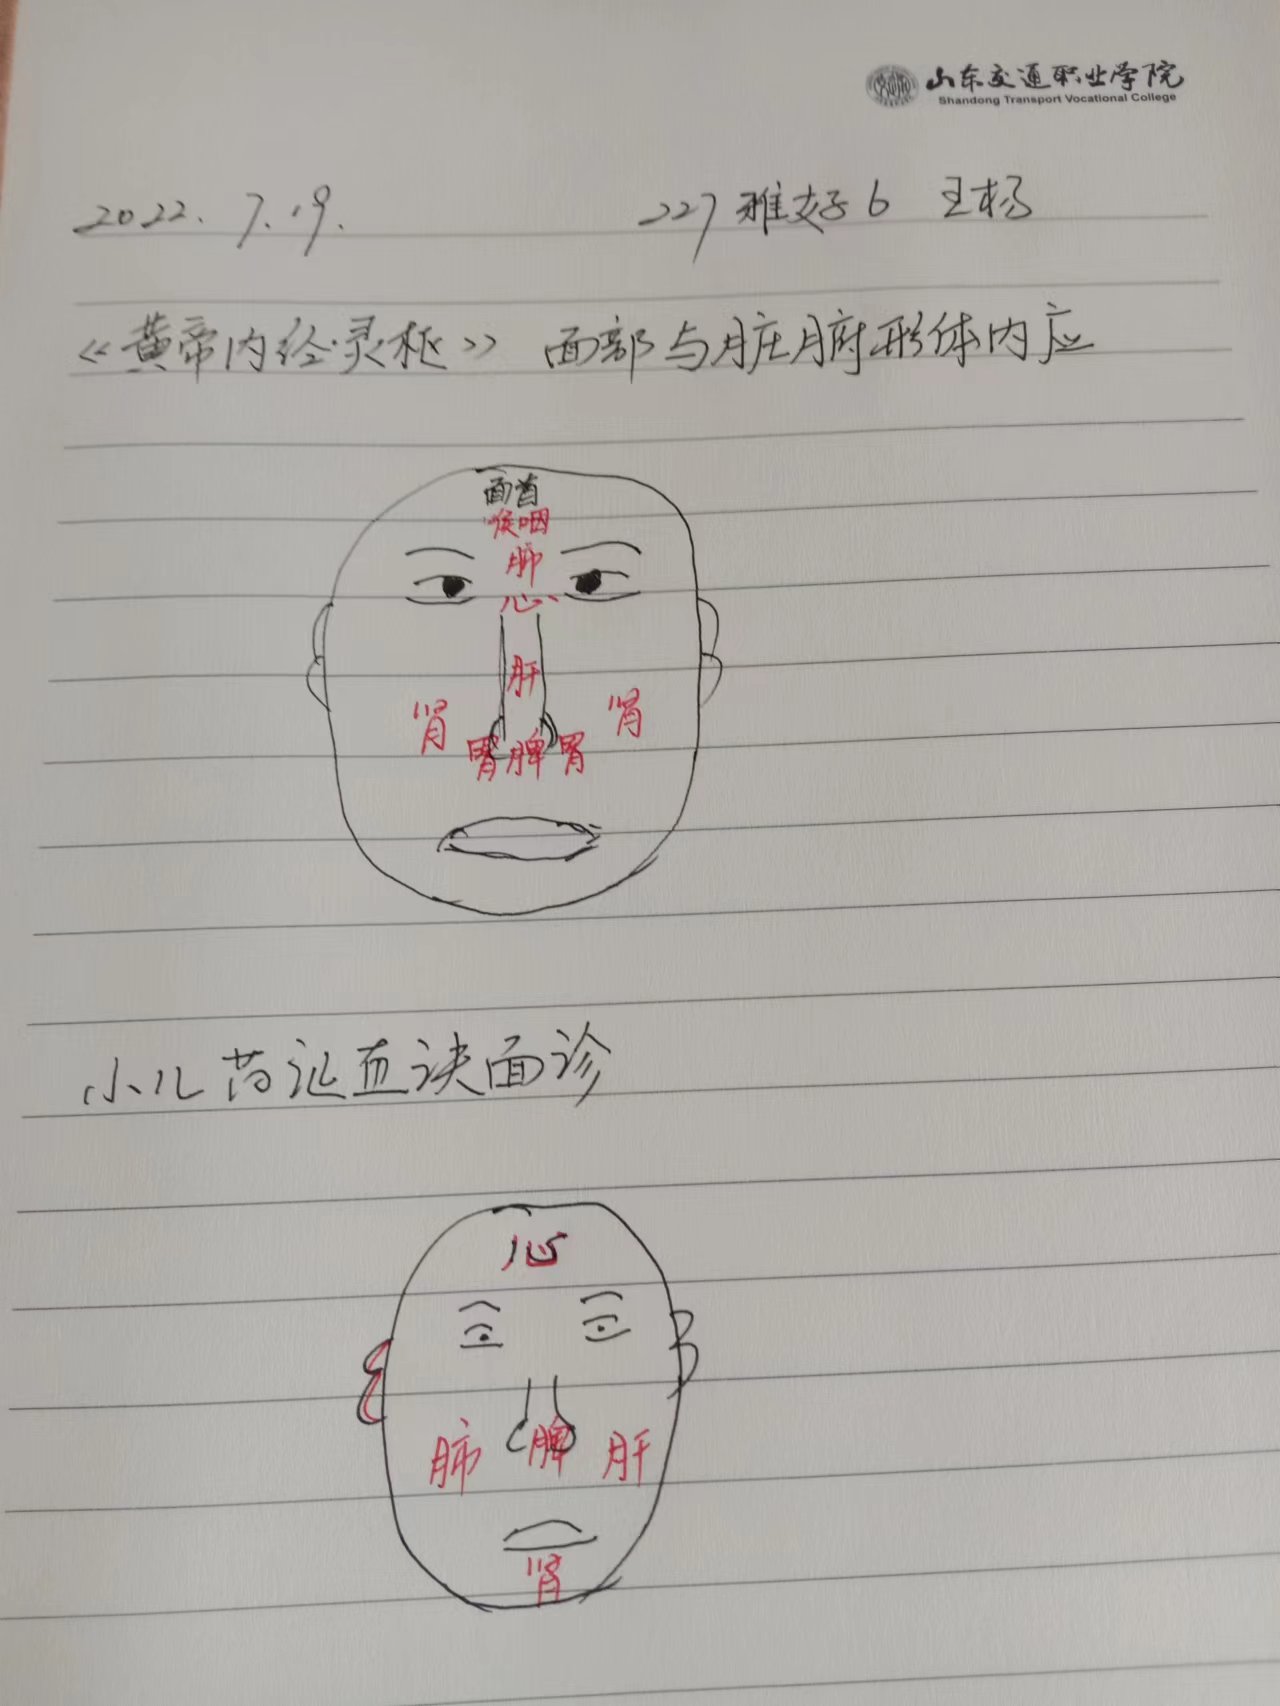 山东交通职业学院
Shandong Transport Vocational College
2022.7.19. 227雅好6 王杨
《黄帝内经·灵枢》 面部与脏腑形体内应
面首
喉咽
肺
心
肝
肾 肾
胃脾胃
小儿药证直诀面诊
心
肺 脾 肝
肾